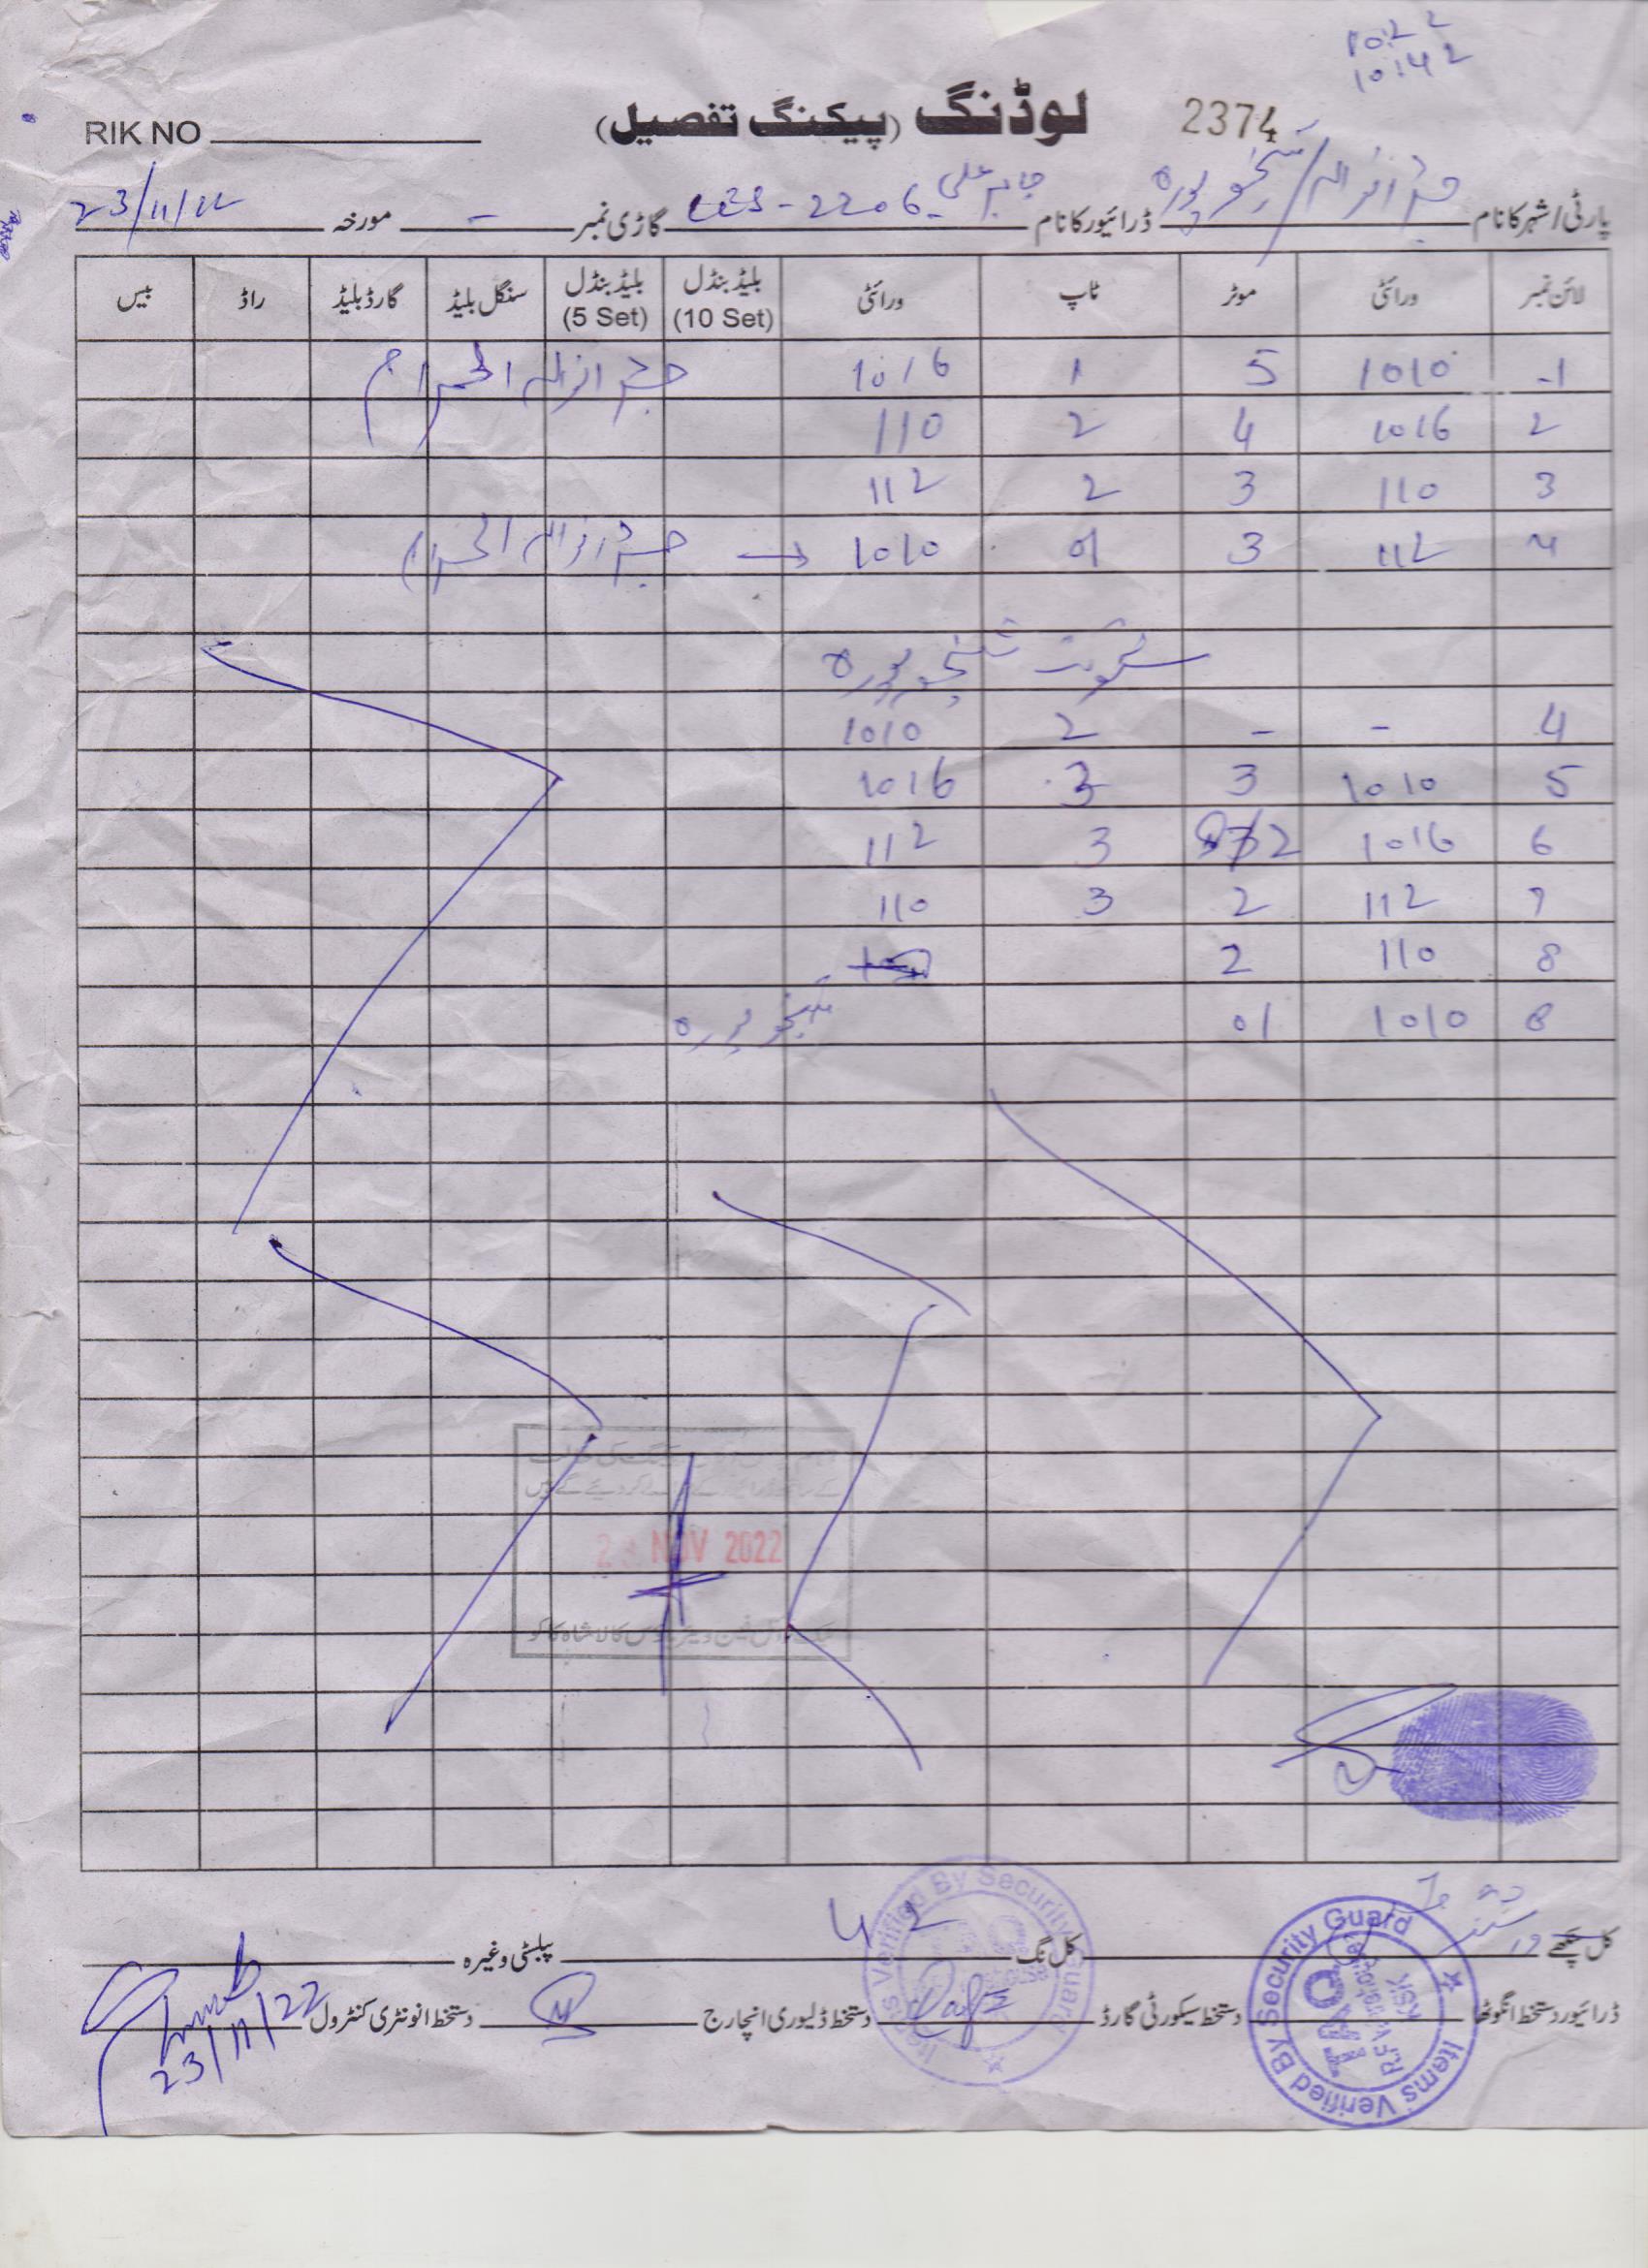 10:22
10:42
2374 لوڈنگ (پیکنگ تفصیل) RIK NO
پارٹی/شہر کا نام جڑانوالہ/شیخوپورہ ڈرائیور کا نام جابر علی گاڑی نمبر LES-2206 - مورخہ 23/11/22
لائن نمبر ورائٹی موٹر ٹاپ ورائٹی بلیڈ بنڈل (10 Set) بلیڈ بنڈل (5 Set) سنگل بلیڈ گارڈ بلیڈ راڈ بیس
1- 1010 5 1 1016 جڑانوالہ
2 1016 4 2 110
3 110 3 2 112
112 3 01 1010 → جڑانوالہ
شیخوپورہ
4 - - 2 1010
5 1010 3 3 1016
6 1016 2 3 112
7 112 2 3 110
8 110 2
8 1010 01 شیخوپورہ
23 NOV 2022
کل پکھے کل نگ 42 پبلسٹی وغیرہ
ڈرائیور دستخط انگوٹھا دستخط سیکورٹی گارڈ دستخط ڈلیوری انچارج دستخط انونٹری کنٹرول
23/11/22
Items Verified By Security Guard
Items Verified By Security Guard